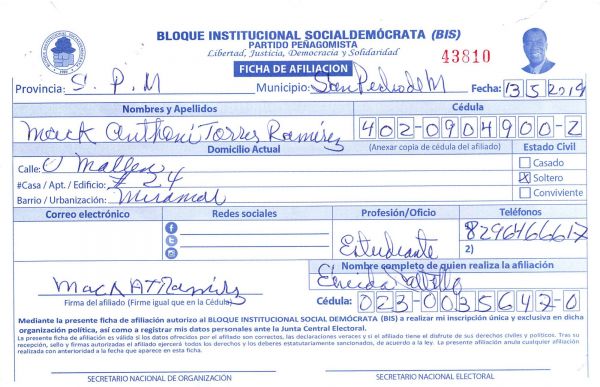 BLOQUE INSTITUCIONAL SOCIALDEMÓCRATA (BIS)
PARTIDO PEÑAGOMISTA
Libertad, Justicia, Democracia y Solidaridad
43810
FICHA DE AFILIACION
Provincia: S. P. M Municipio: San Pedro de M Fecha: 13 5 2019
Nombres y Apellidos Cédula
Mack Anthoni Torres Ramírez 402-0904900-2
Domicilio Actual (Anexar copia de cédula del afiliado) Estado Civil
Calle: O Mallen Casado
#Casa / Apt. / Edificio: # 24 X Soltero
Barrio / Urbanización: Miramar Conviviente
Correo electrónico Redes sociales Profesión/Oficio Teléfonos
Estudiante 8296466617
2)
Nombre completo de quien realiza la afiliación
Mack AT Ramírez Eneida
Firma del afiliado (Firme igual que en la Cédula) Cédula: 023-0035647-0
Mediante la presente ficha de afiliación autorizo al BLOQUE INSTITUCIONAL SOCIAL DEMÓCRATA (BIS) a realizar mi inscripción única y exclusiva en dicha
organización política, así como a registrar mis datos personales ante la Junta Central Electoral.
La presente ficha de afiliación es válida si los datos ofrecidos por el afiliado son correctos, las declaraciones veraces y si el afiliado tiene el disfrute de sus derechos civiles y políticos. Tras su
recepción, sello y firmas autorizadas el afiliado ejercerá todos los derechos y los deberes estatutariamente sancionados, de acuerdo a la ley. La presente afiliación anula cualquier afiliación
realizada con anterioridad a la fecha que aparece en esta ficha.
SECRETARIO NACIONAL DE ORGANIZACIÓN SECRETARIO NACIONAL ELECTORAL